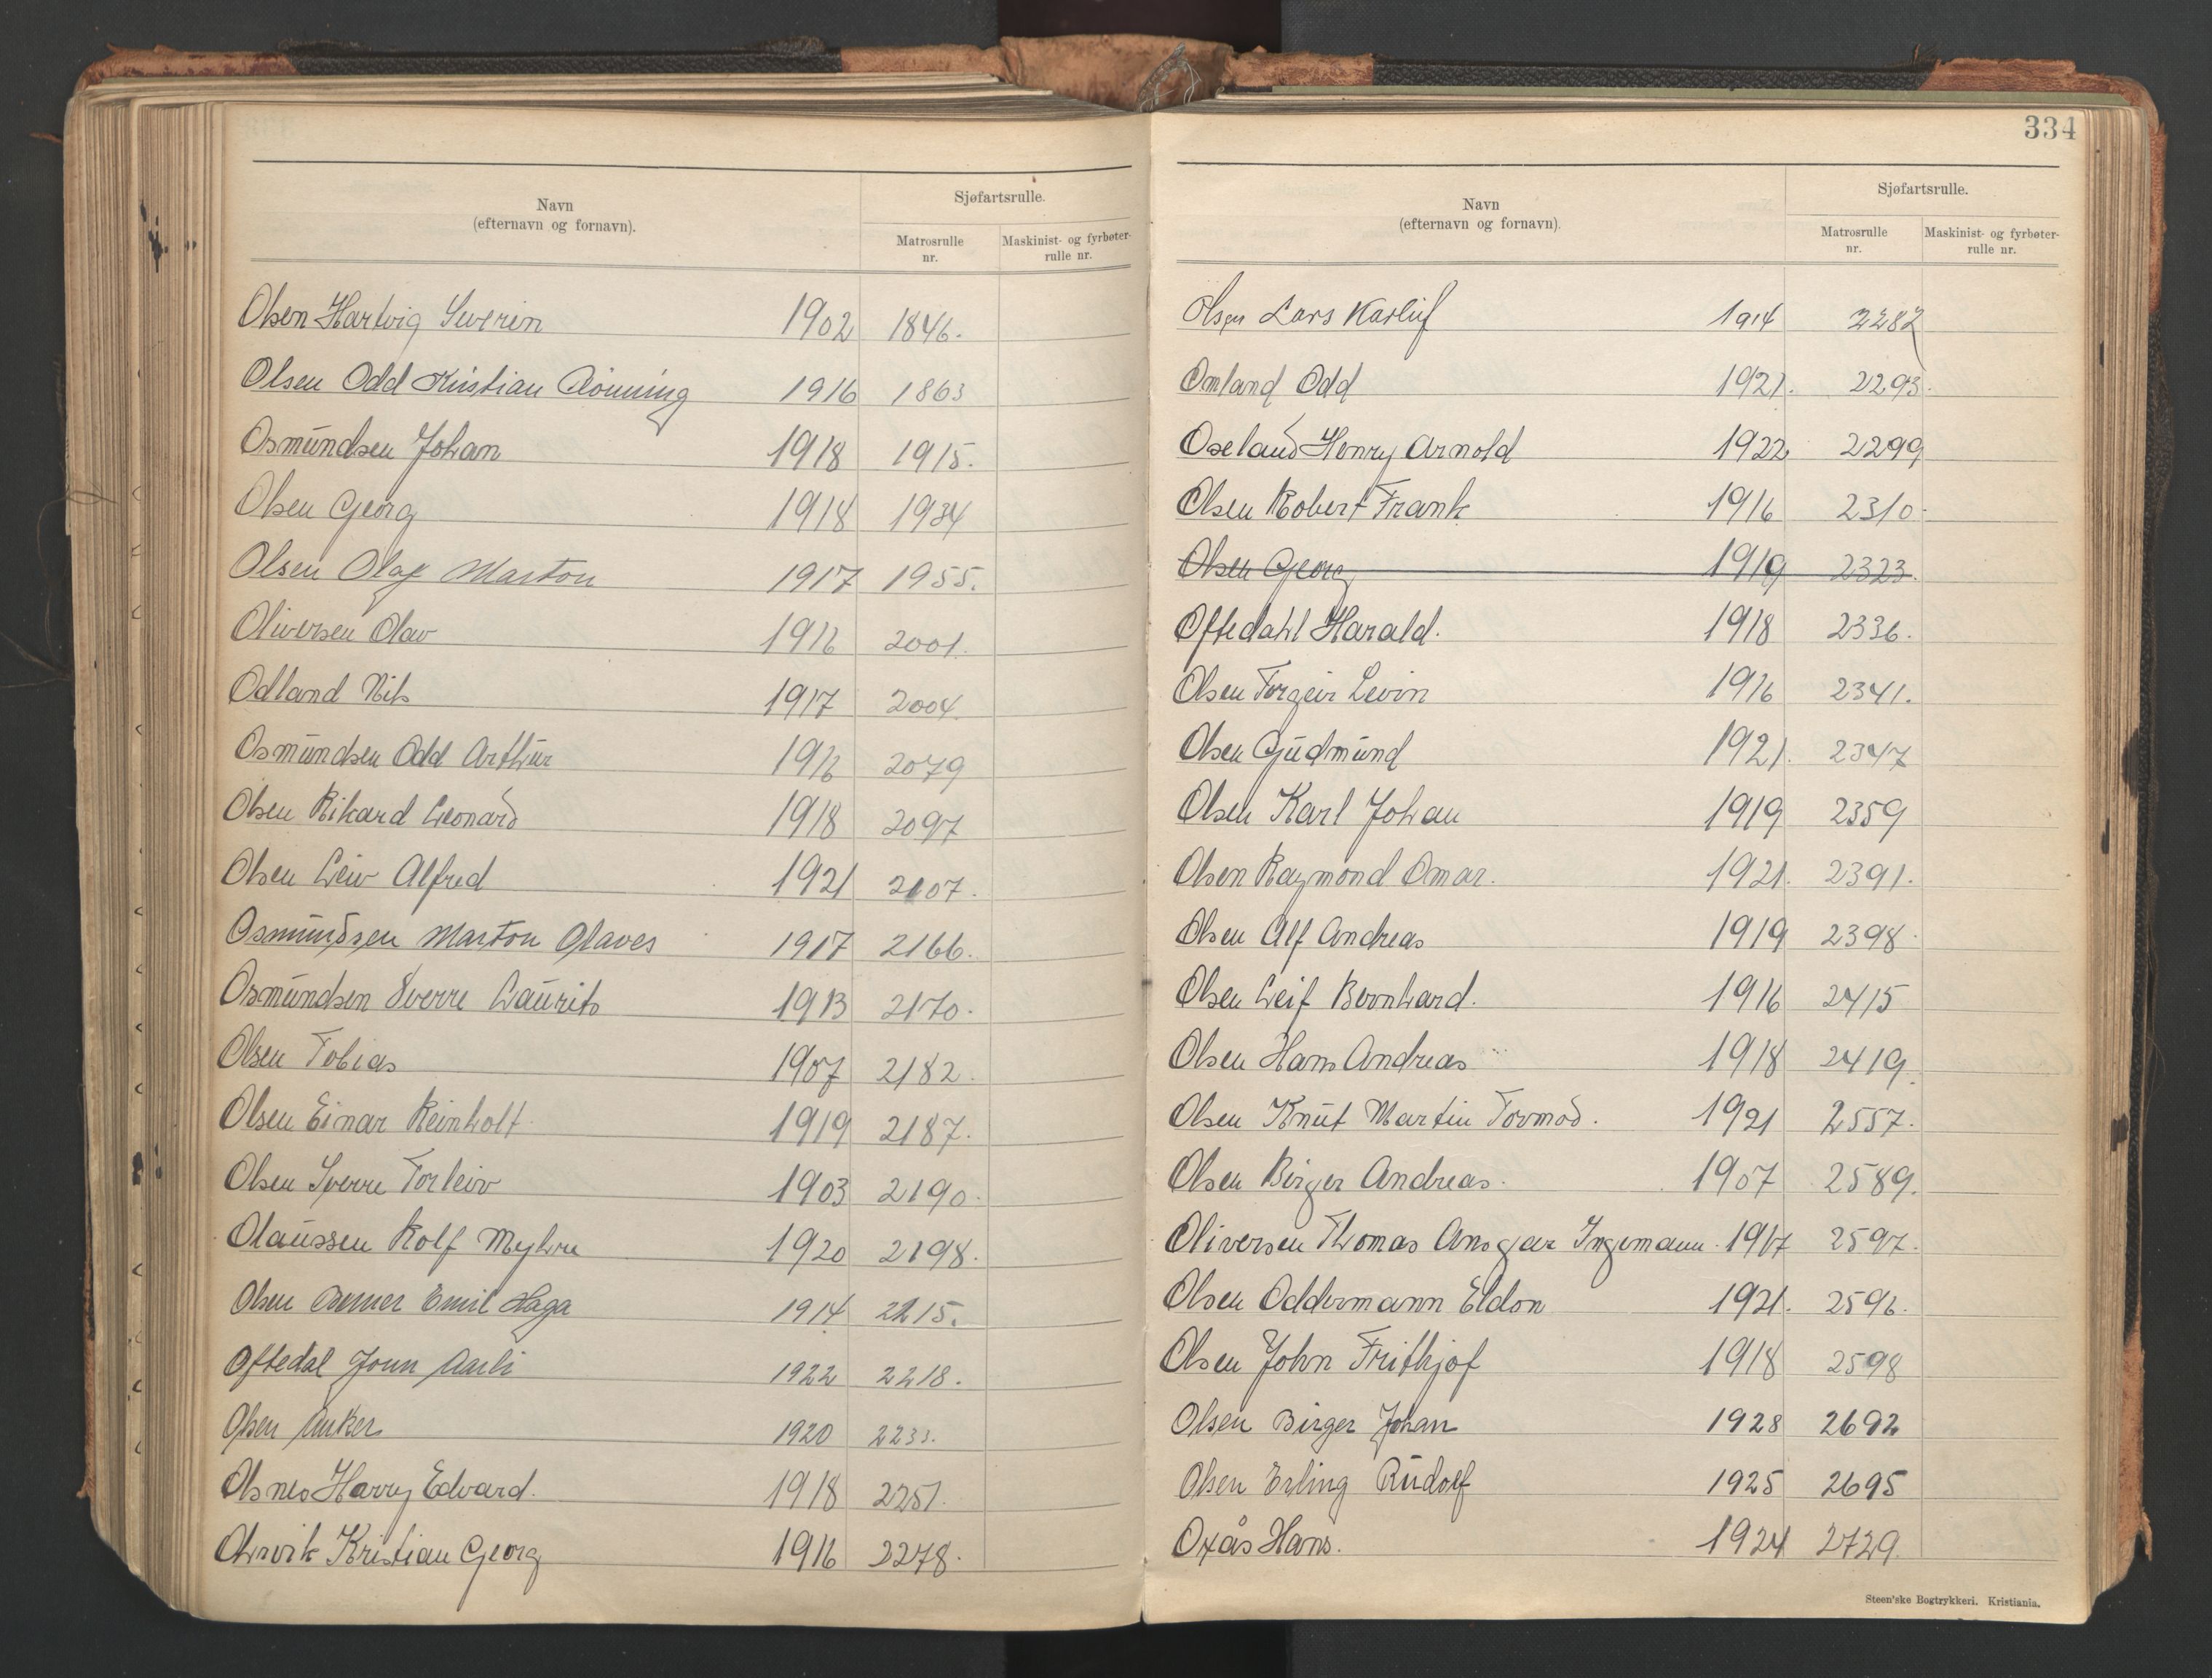 Navn
(efternavn og fornavn).
Sjøfartsrulle.
Matrosrulle
nr.
Maskinist- og fyrbøter-
rulle nr.
Olsen Hartvig Severin 1902 1846.
Olsen Odd Kristian Rönning 1916 1863
Osmundsen Johan 1918 1915.
Olsen Georg 1918 1934
Olsen Olaf Marton 1917 1955.
Oliversen Olav 1916 2001.
Odland Nils 1917 2004.
Osmundsen Odd Arthur 1916 2079
Olsen Rikard Leonard 1918 2097
Olsen Leiv Alfred 1921 2107.
Osmundsen Marton Olaves 1917 2166.
Osmundsen Sverre Laurits 1913 2170.
Olsen Tobias 1907 2182.
Olsen Einar Reinholt. 1919 2187.
Olsen Sverre Torleiv 1903 2190.
Olaussen Rolf Myhre 1920 2198.
Olsen Berner Emil Haga 1914 2215.
Oftedal Jonn Aarli 1922 2218.
Olsen Anker 1920 2233.
Olsnes Harry Edvard. 1918 2251.
Olsvik Kristian Georg 1916 2278.
334
Navn
(efternavn og fornavn).
Sjøfartsrulle.
Matrosrulle
nr.
Maskinist- og fyrbøter-
rulle nr.
Olsen Lars Karluf 1914 2282
Omland Odd 1921. 2293.
Oseland Henry Arnold 1922 2299
Olsen Robert Frank 1916 2310.
Olsen Georg 1919 2323.
Oftedahl Harald. 1918 2336.
Olsen Torgeir Levin 1916 2341.
Olsen Gudmund 1921. 2347
Olsen Karl Johan 1919 2359
Olsen Raymond Omar. 1921. 2391.
Olsen Alf Andreas 1919 2398.
Olsen Leif Bernhard. 1916 2415
Olsen Hans Andreas 1918 2419.
Olsen Knut Martin Tormod. 1921 2557.
Olsen Birger Andreas. 1907 2589.
Oliversen Thomas Ansgar Ingemann. 1917 2597.
Olsen Oddvrmann Eldon 1921. 2596.
Olsen John Frithjof 1918 2598
Olsen Birger Johan 1928 2692
Olsen Erling Rudolf 1925 2695
Oxås Hans. 1924 2729.
Steen'ske Bogtrykkeri. Kristiania.